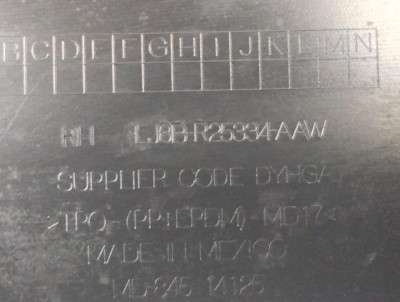 B C D E F G H I J K L M N
RH LJ8B-R25334-AAW
SUPPLIER CODE DYHGA
>TPO-(PP+EPDM)-MD17<
MADE IN MEXICO